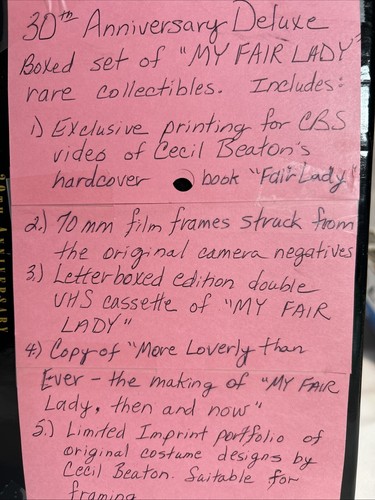 30th Anniversary Deluxe
Boxed set of "MY FAIR LADY"
rare collectibles. Includes:
1) Exclusive printing for CBS
video of Cecil Beaton's
hardcover book "Fair Lady"
2.) 70 mm film frames struck from
the original camera negatives
3.) Letterboxed edition double
VHS cassette of "MY FAIR
LADY"
4.) Copy of "More Loverly than
Ever - the making of "MY FAIR
Lady, then and now"
5.) Limited Imprint portfolio of
original costume designs by
Cecil Beaton. Suitable for
framing
30TH ANNIVERSARY